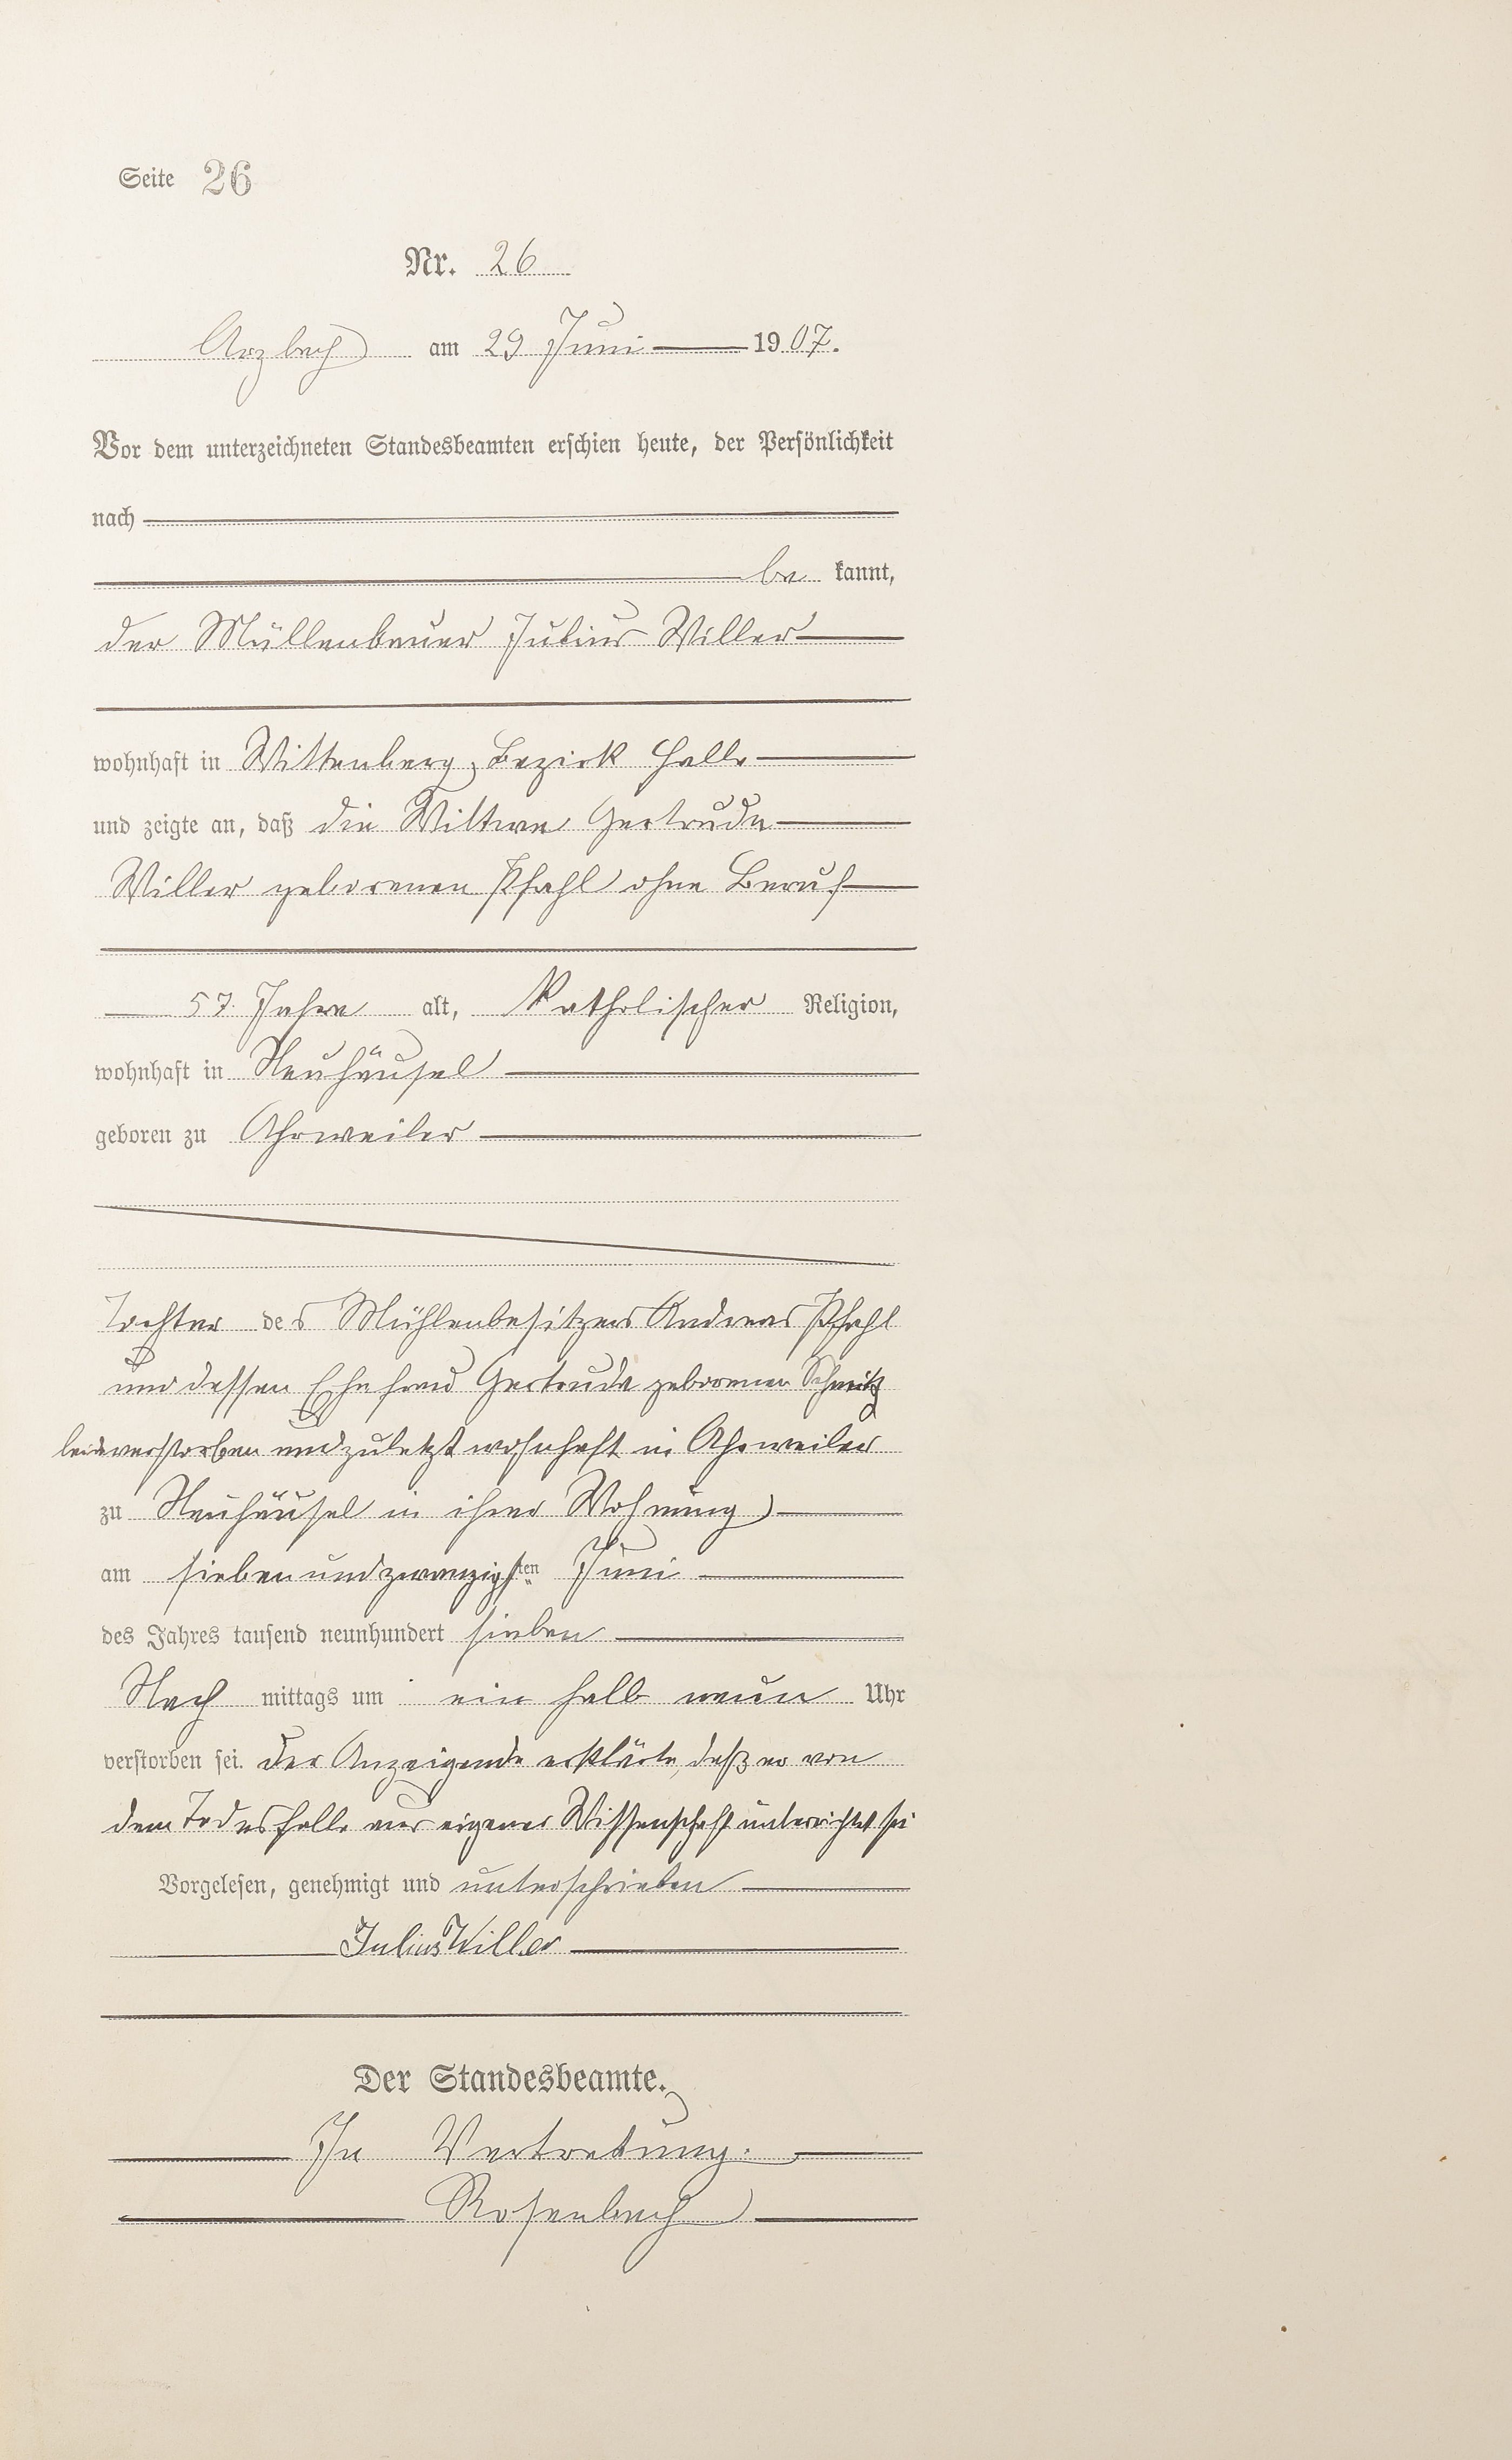 Seite 26
Nr. 26
Arzbach am 29 Juni 1907.
Vor dem unterzeichneten Standesbeamten erschien heute, der Persönlichkeit
nach
be kannt,
der Müllenbauer Julius Willer
wohnhaft in Wittenberg, Bezirk Halle
und zeigte an, daß die Wittwe Gertrude
Willer geborenen Pfahl ohne Beruf
57 Jahre alt, Katholischer Religion,
wohnhaft in Neuhäusel
geboren zu Ahrweiler
Tochter des Mühlenbesitzers Andreas Pfahl
und dessen Ehefrau Gertrude geborenen
verstorben und zuletzt wohnhaft in Ahrweiler
zu Neuhäusel in ihrer Wohnung
am siebenundzwanzigsten Juni
des Jahres tausend neunhundert sieben
Nach mittags um ein halb neun Uhr
verstorben sei. Der Anzeigende erklärte, daß er von
dem Todesfalle aus eigener Wissenschaft unterrichtet sei
Vorgelesen, genehmigt und unterschrieben
Julius Willer
Der Standesbeamte.
In Vertretung.
Rosenbach